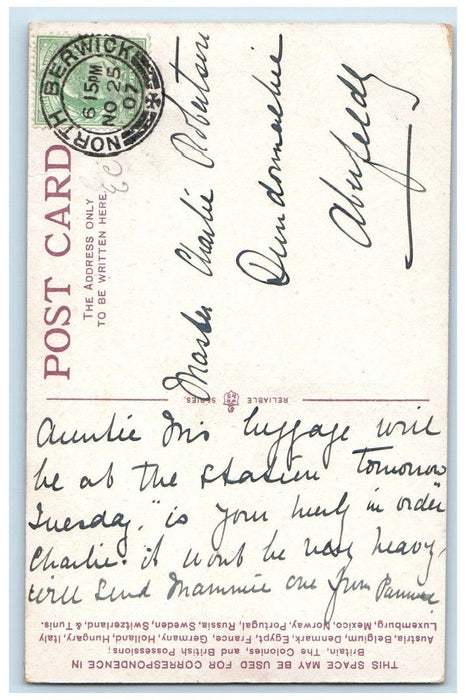 POST CARD
THE ADDRESS ONLY
TO BE WRITTEN HERE.
NORTH BERWICK
6 15PM
NO 25
07
Master Charlie Robertson
Aberfeldy
RELIABLE SERIES.
THIS SPACE MAY BE USED FOR CORRESPONDENCE IN
Britain, The Colonies, and British Possessions;
Austria, Belgium, Denmark, Egypt, France, Germany, Holland, Hungary, Italy,
Luxemburg, Mexico, Norway, Portugal, Russia, Sweden, Switzerland & Tunis.
Auntie luggage will
be at the station tomorrow
Tuesday, "is your hurly in order
Charlie. it wont be very heavy,
will send Mammie one from